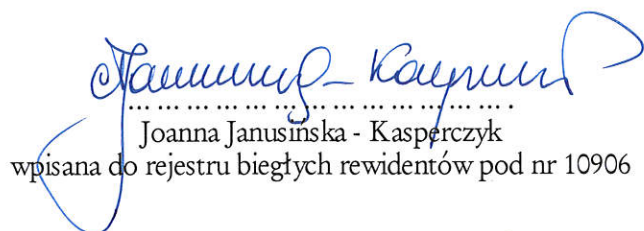 Joanna Janusińska - Kasperczyk
wpisana do rejestru biegłych rewidentów pod nr 10906